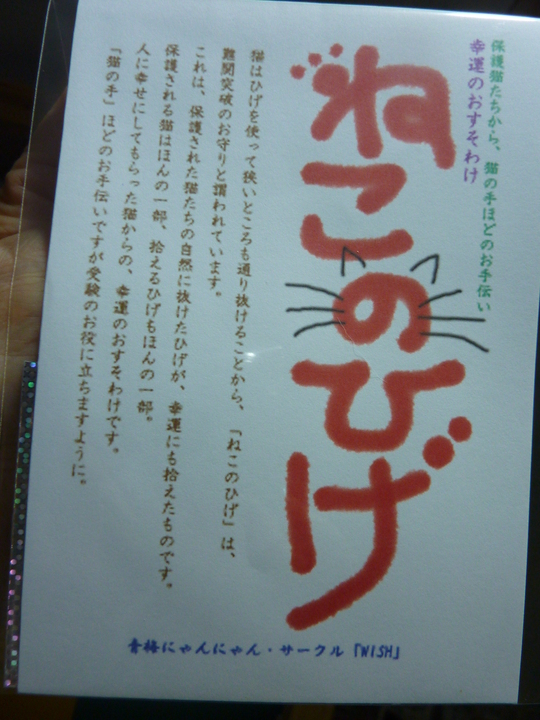 保護猫たちから、猫の手ほどのお手伝い
幸運のおすそわけ
ねこのひげ
猫はひげを使って狭いところも通り抜けることから、「ねこのひげ」は、
難関突破のお守りと謂われています。
これは、保護された猫たちの自然に抜けたひげが、幸運にも拾えたものです。
保護される猫はほんの一部、拾えるひげもほんの一部。
人に幸せにしてもらった猫からの、幸運のおすそわけです。
「猫の手」ほどのお手伝いですが受験のお役に立ちますように。
青梅にゃんにゃん・サークル「WISH」